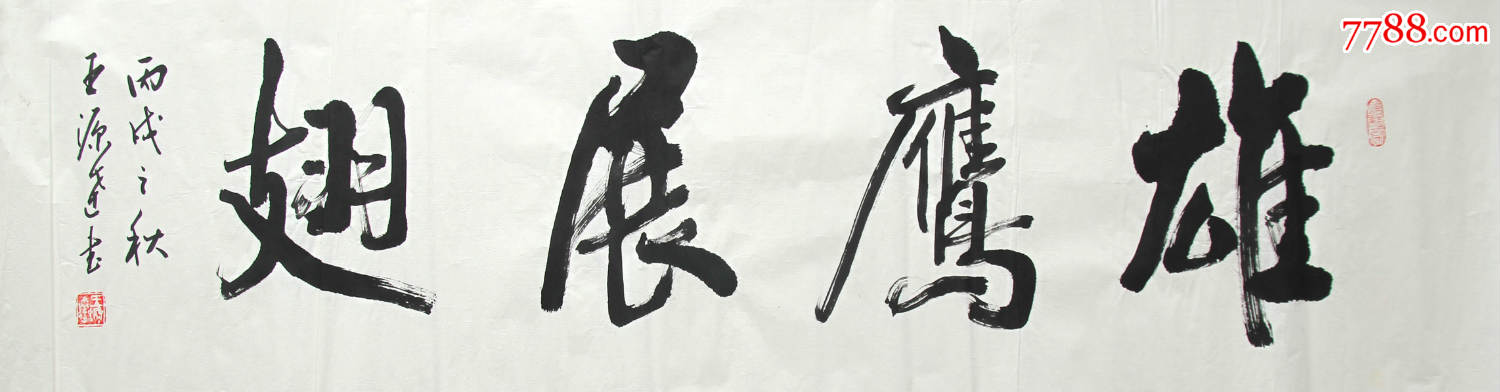 7788.com
雄鹰展翅
丙戌之秋
王源莲书